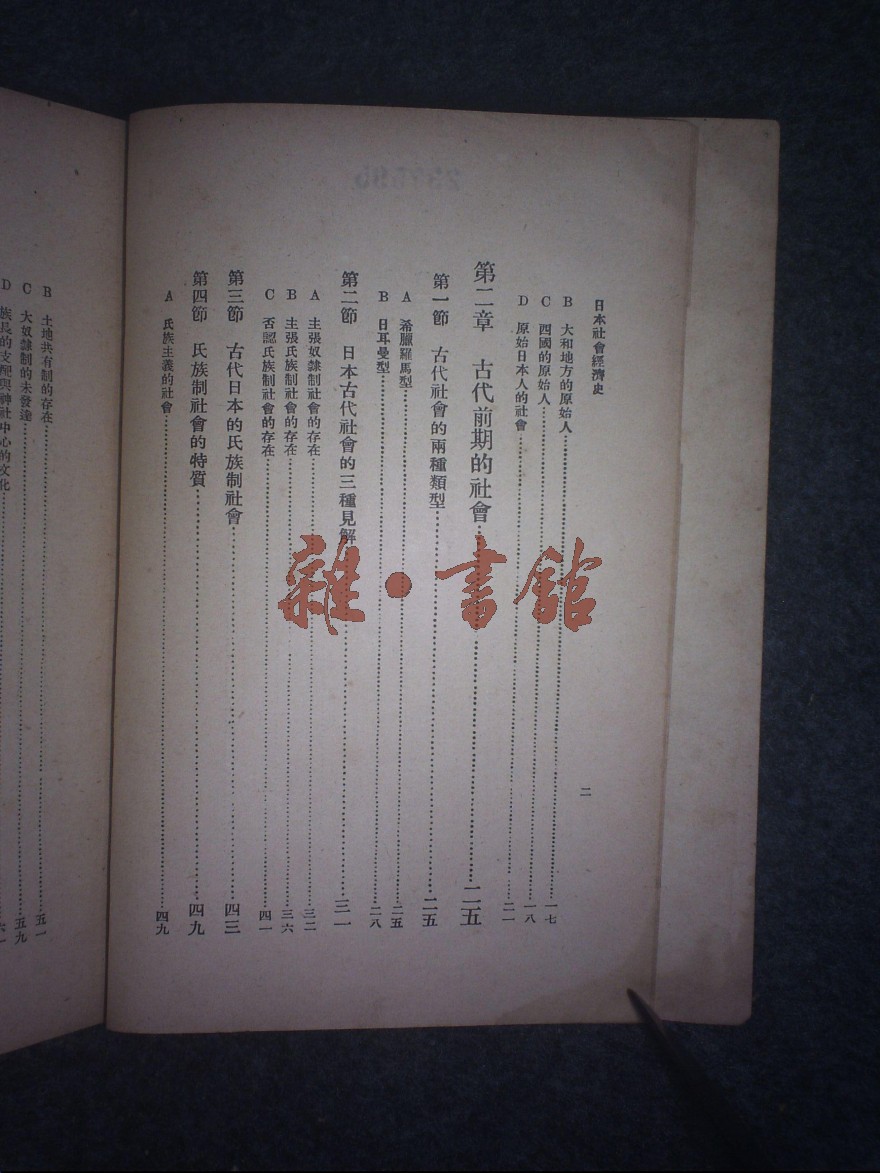 日本社會經濟史
二
B 大和地方的原始人 一七
C 四國的原始人 一八
D 原始日本人的社會 二一
第二章 古代前期的社會 二五
第一節 古代社會的兩種類型 二五
A 希臘羅馬型 二五
B 日耳曼型 二八
第二節 日本古代社會的三種見解 三一
A 主張奴隸制社會的存在 三二
B 主張氏族制社會的存在 三六
C 否認氏族制社會的存在 四一
第三節 古代日本的氏族制社會 四三
第四節 氏族制社會的特質 四九
A 氏族主義的社會 四九
B 土地共有制的存在 五一
C 大奴隸制的未發達 五九
D 族長的支配與神社中心的文化
雜·書館